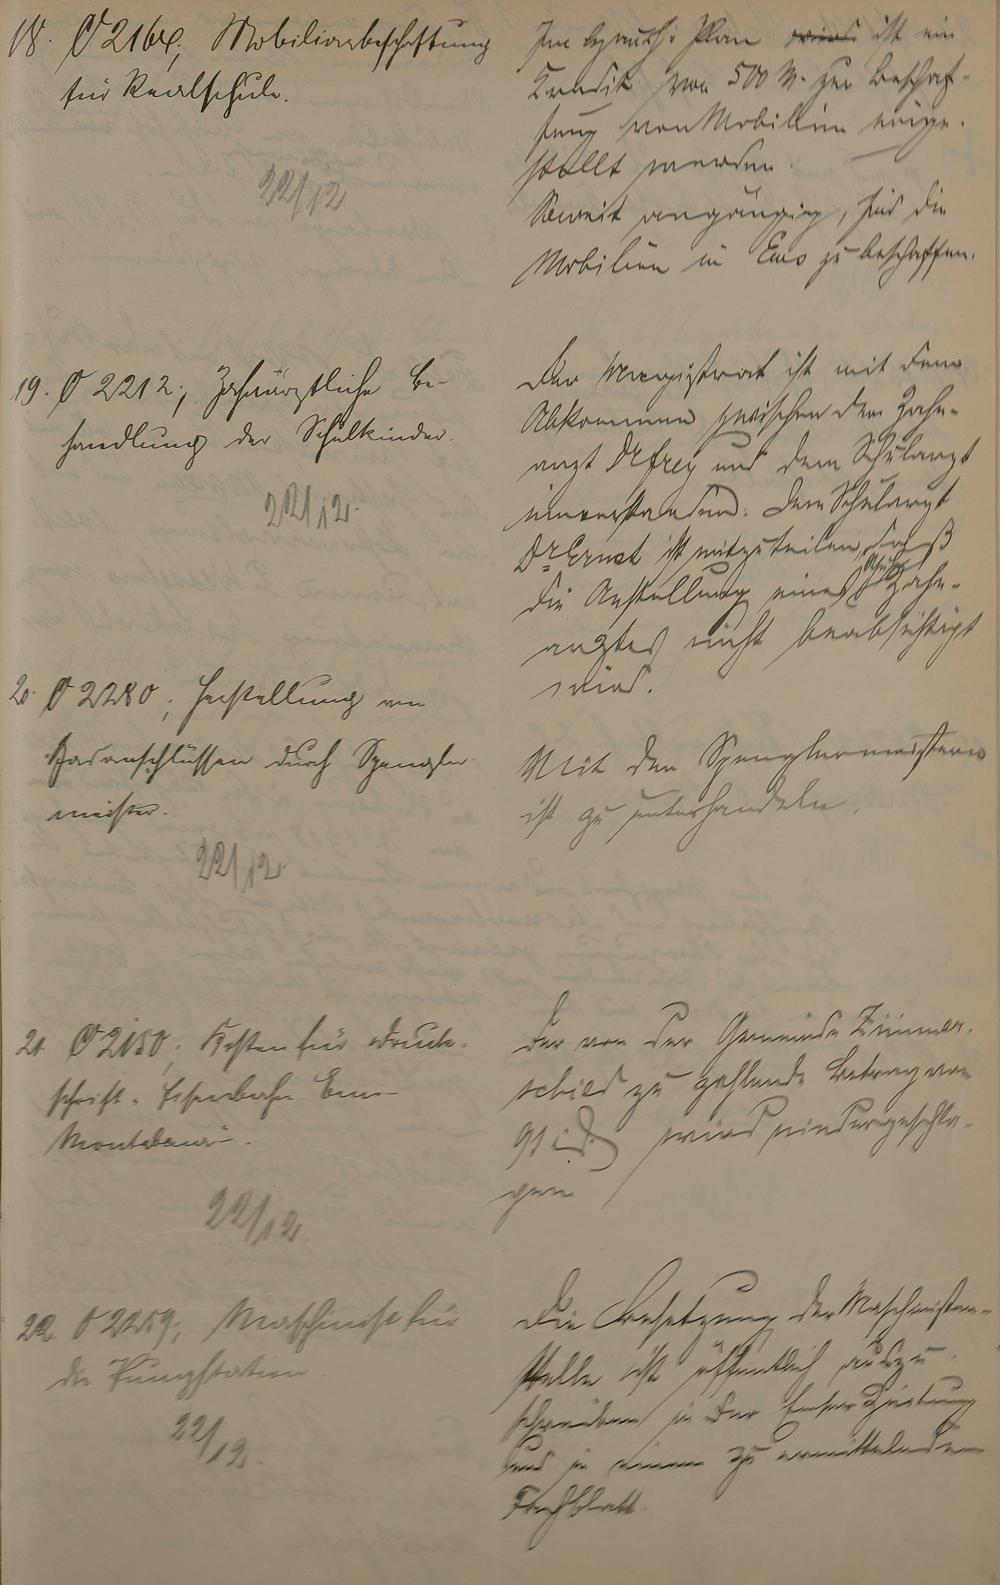 18. O 2164; Mobiliarbeschaffung
für Realschule.
22/12
Im Plan wird ist ein
Kredit von 500 M. zur Beschaf-
fung von Mobilien einge-
stellt worden.
Soweit angängig, sind die
Mobilien in Ems zu beschaffen.
19. O 2212; Zahnärztliche Be-
handlung der Schulkinder.
22/12.
Der Magistrat ist mit dem
Abkommen zwischen dem Zahn-
arzt Dr Frey und dem Schularzt
einverstanden. Dem Schularzt
Dr Ernst ist mitzuteilen, daß
die Anstellung eines Schulzahn-
arztes nicht beabsichtigt
wird.
20. O 2280; Herstellung von
Gasanschlüssen durch Spengler-
meister.
22/12
Mit den Spenglermeistern
ist zu unterhandeln.
21. O 2150; Kosten für Druck-
schrift. Eisenbahn Ems-
Montabaur.
22/12
Der von der Gemeinde Zimmer-
schied zu zahlende Betrag von
91 wird niedergeschla-
gen
22. O 2259; Maschinist für
die Pumpstation.
22/12.
Die Besetzung der Maschinisten-
stelle ist öffentlich auszu-
schreiben in der Emser Zeitung
und in einem zu ermittelnden
Fachblatt.